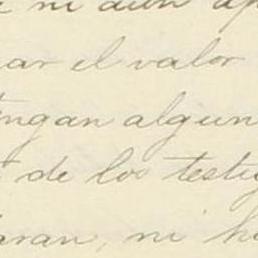 ni aun
ar el valor
ngan algun
de los testig
aran, ni h